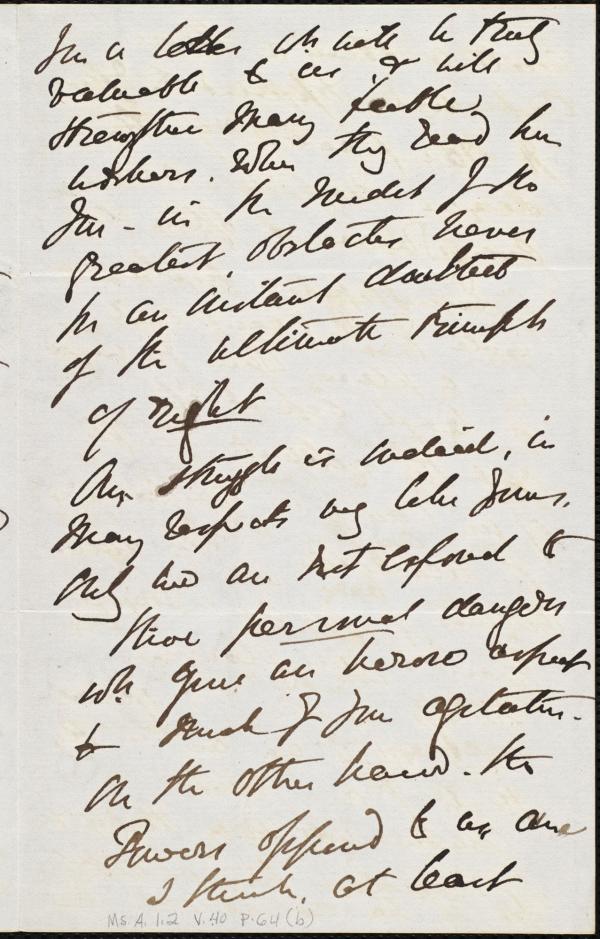 you a letter wh will be truly
valuable to us, & will
strengthen many feeble
workers. When they read how
you - in the midst of the
greatest obstacles never
for an instant doubted
of the ultimate triumph
of right
Our struggle is indeed, in
many respects very like yours.
only we are not exposed to
those personal dangers
wh gave an heroic aspect
to much of your agitation.
On the other hand. the
Powers opposed to us are
I think, at least
Ms. A. 1.2 V. 40 P. 64 (b)